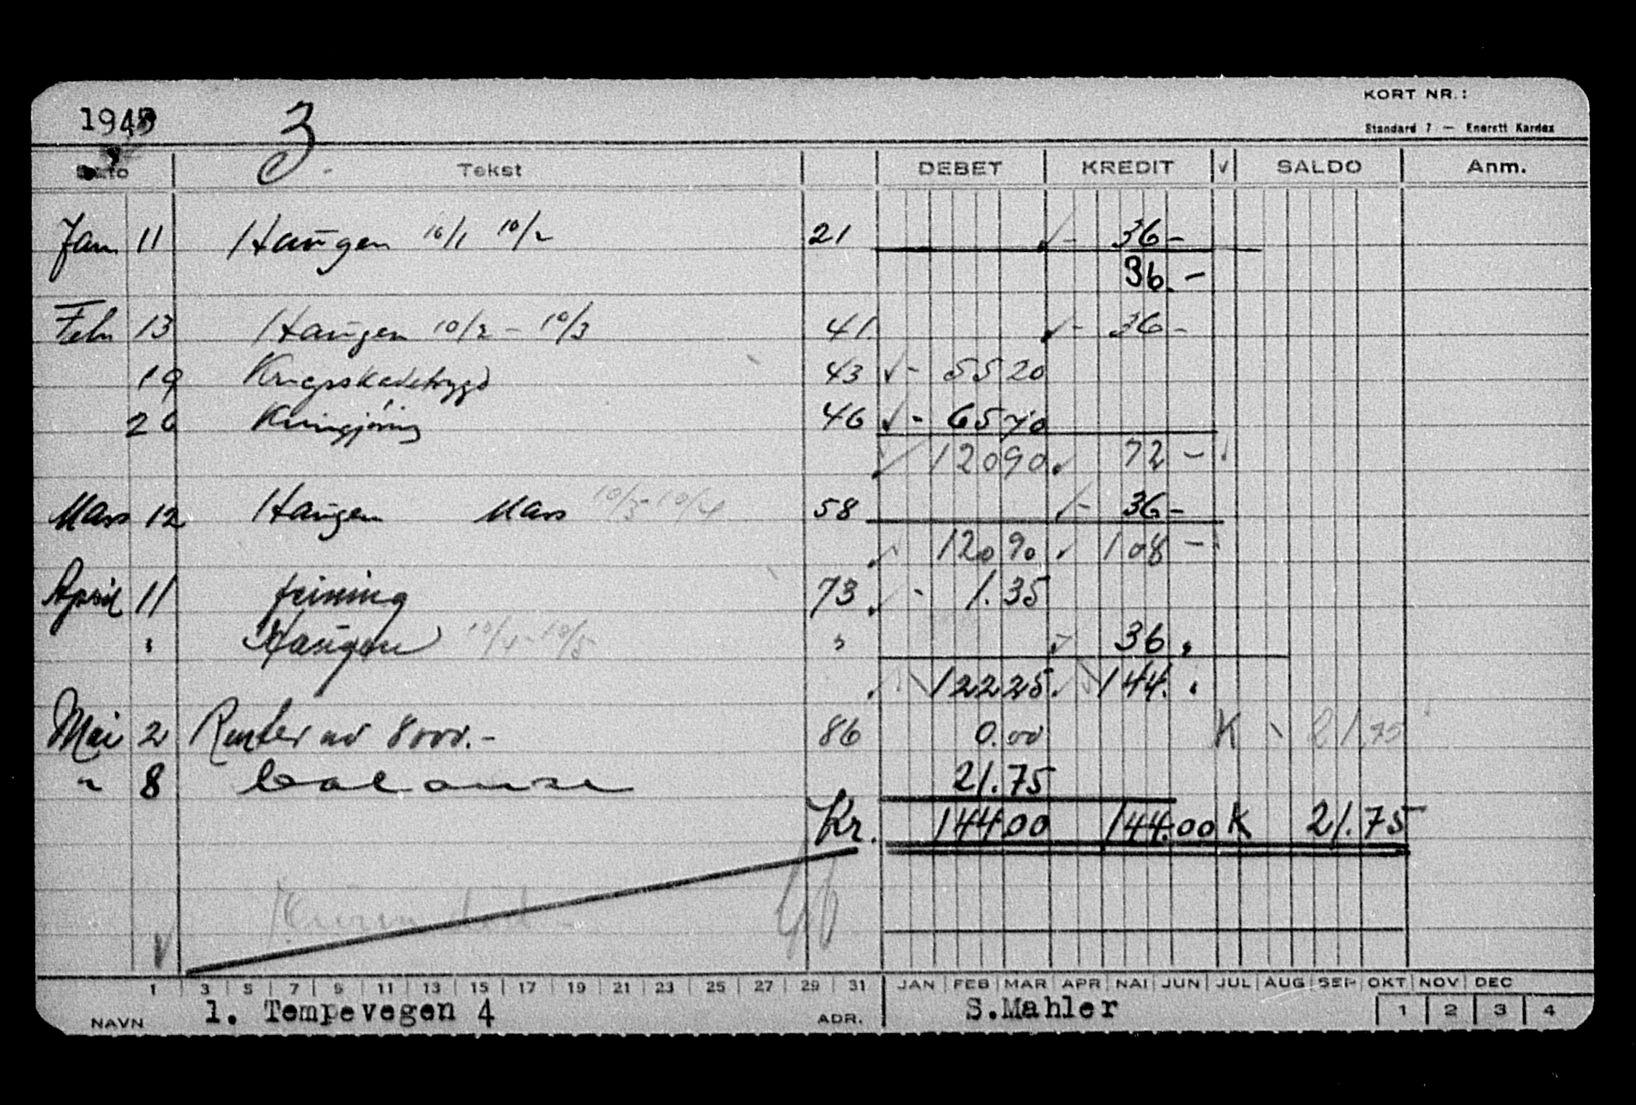 KORT NR.:
1945 3.
Standard 7 — Enerett Kardex
Dato Tekst DEBET KREDIT √ SALDO Anm.
Jan 11 Haugen 10/1 10/2 21 √- 36-
36.-
Feb 13 Haugen 10/2 - 10/3 41. √- 36-
19 Krigsskadetrygd 43 √- 5520
26 46 √- 6570
√ 12090 √ 72 -
Mars 12 Haugen Mars 10/3 10/4 58 /- 36-
√ 12090 √ 108 -
April 11 feining 73 √ - 1.35
" Haugen 10/4-10/5 " √ 36 "
12225. √ 144. "
Mai 2 Renter av 8000.- 86 0.00 K 21.75
" 8 balanse 21.75
Kr. 14400 144.00 K 21.75
1 3 5 7 9 11 13 15 17 19 21 23 25 27 29 31 JAN FEB MAR APR MAI JUN JUL AUG SEP OKT NOV DEC
NAVN 1. Tempevegen 4 ADR. S.Mahler 1 2 3 4